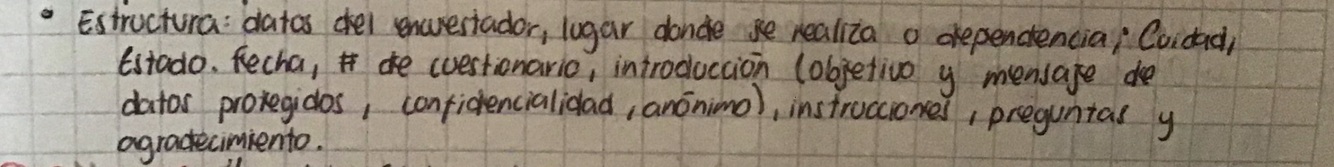 • Estructura: datos del encuestador, lugar donde se realiza o dependencia; Cuidad,
Estado. Fecha, # de cuestionario, introducción (objetivo y mensaje de
datos protegidos, confidencialidad, anónimo), instrucciones, preguntas y
agradecimiento.